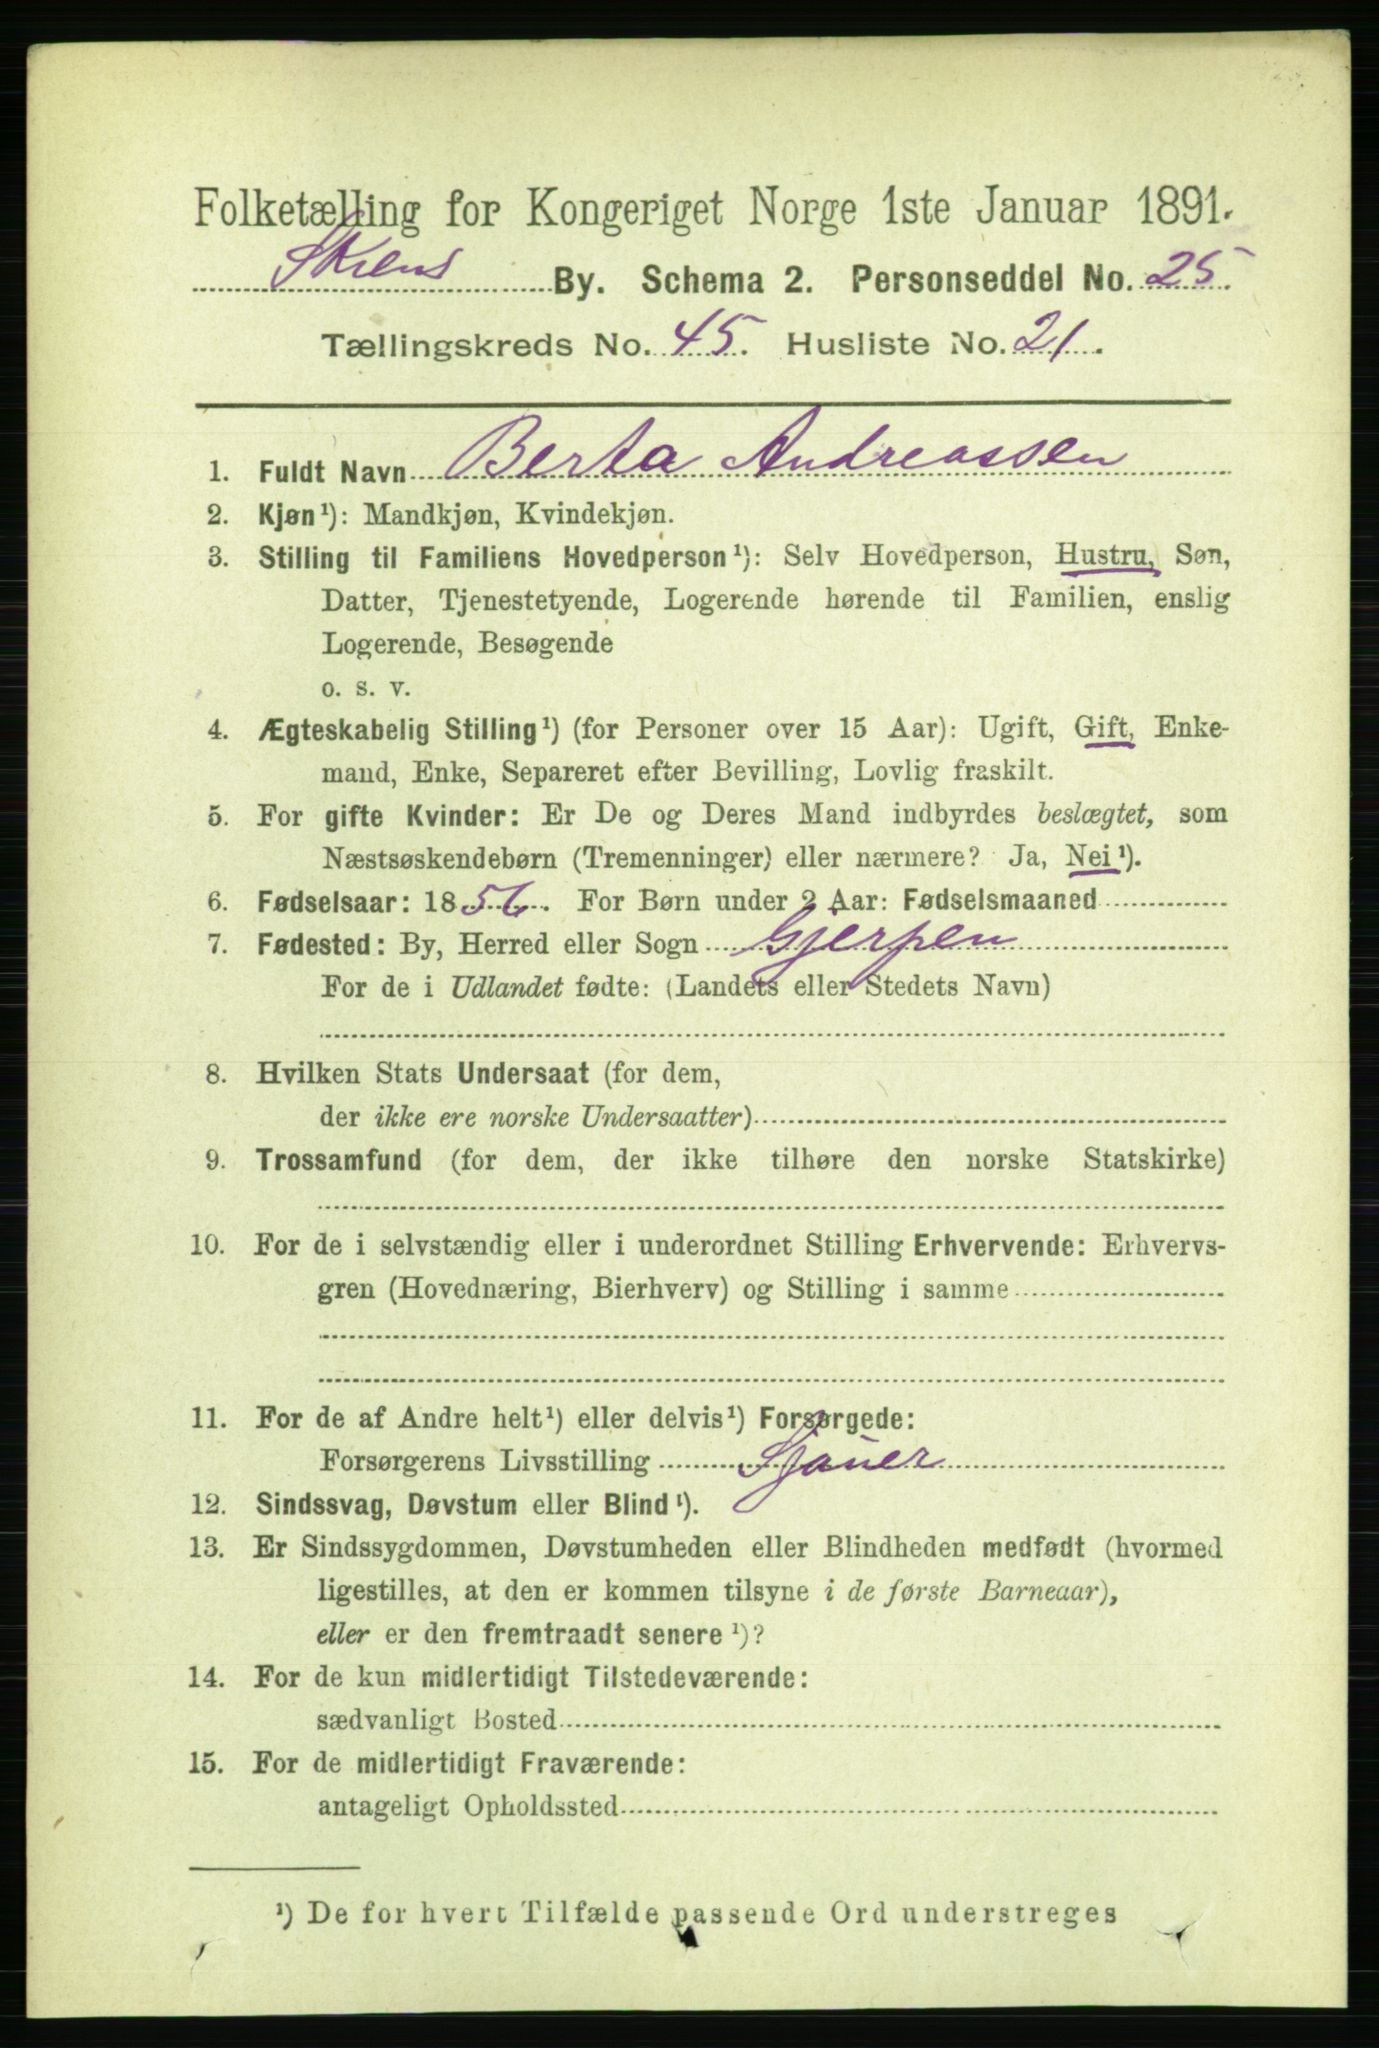 Folketælling for Kongeriget Norge 1ste Januar 1891.
Skiens By. Schema 2. Personseddel No. 25.
Tællingskreds No. 45. Husliste No. 21.
1. Fuldt Navn Berta Andreassen
2. Kjøn¹): Mandkjøn, Kvindekjøn.
3. Stilling til Familiens Hovedperson¹): Selv Hovedperson, Hustru, Søn,
Datter, Tjenestetyende, Logerende hørende til Familien, enslig
Logerende, Besøgende
o. s. v.
4. Ægteskabelig Stilling¹) (for Personer over 15 Aar): Ugift, Gift, Enke-
mand, Enke, Separeret efter Bevilling, Lovlig fraskilt.
5. For gifte Kvinder: Er De og Deres Mand indbyrdes beslægtet, som
Næstsøskendebørn (Tremenninger) eller nærmere? Ja, Nei¹).
6. Fødselsaar: 1856. For Børn under 2 Aar: Fødselsmaaned
7. Fødested: By, Herred eller Sogn Gjerpen
For de i Udlandet fødte: (Landets eller Stedets Navn)
8. Hvilken Stats Undersaat (for dem,
der ikke ere norske Undersaatter)
9. Trossamfund (for dem, der ikke tilhøre den norske Statskirke)
10. For de i selvstændig eller i underordnet Stilling Erhvervende: Erhvervs-
gren (Hovednæring, Bierhverv) og Stilling i samme
11. For de af Andre helt¹) eller delvis¹) Forsørgede:
Forsørgerens Livsstilling Sjauer
12. Sindssvag, Døvstum eller Blind¹).
13. Er Sindssygdommen, Døvstumheden eller Blindheden medfødt (hvormed
ligestilles, at den er kommen tilsyne i de første Barneaar),
eller er den fremtraadt senere¹)?
14. For de kun midlertidigt Tilstedeværende:
sædvanligt Bosted
15. For de midlertidigt Fraværende:
antageligt Opholdssted
¹) De for hvert Tilfælde passende Ord understreges